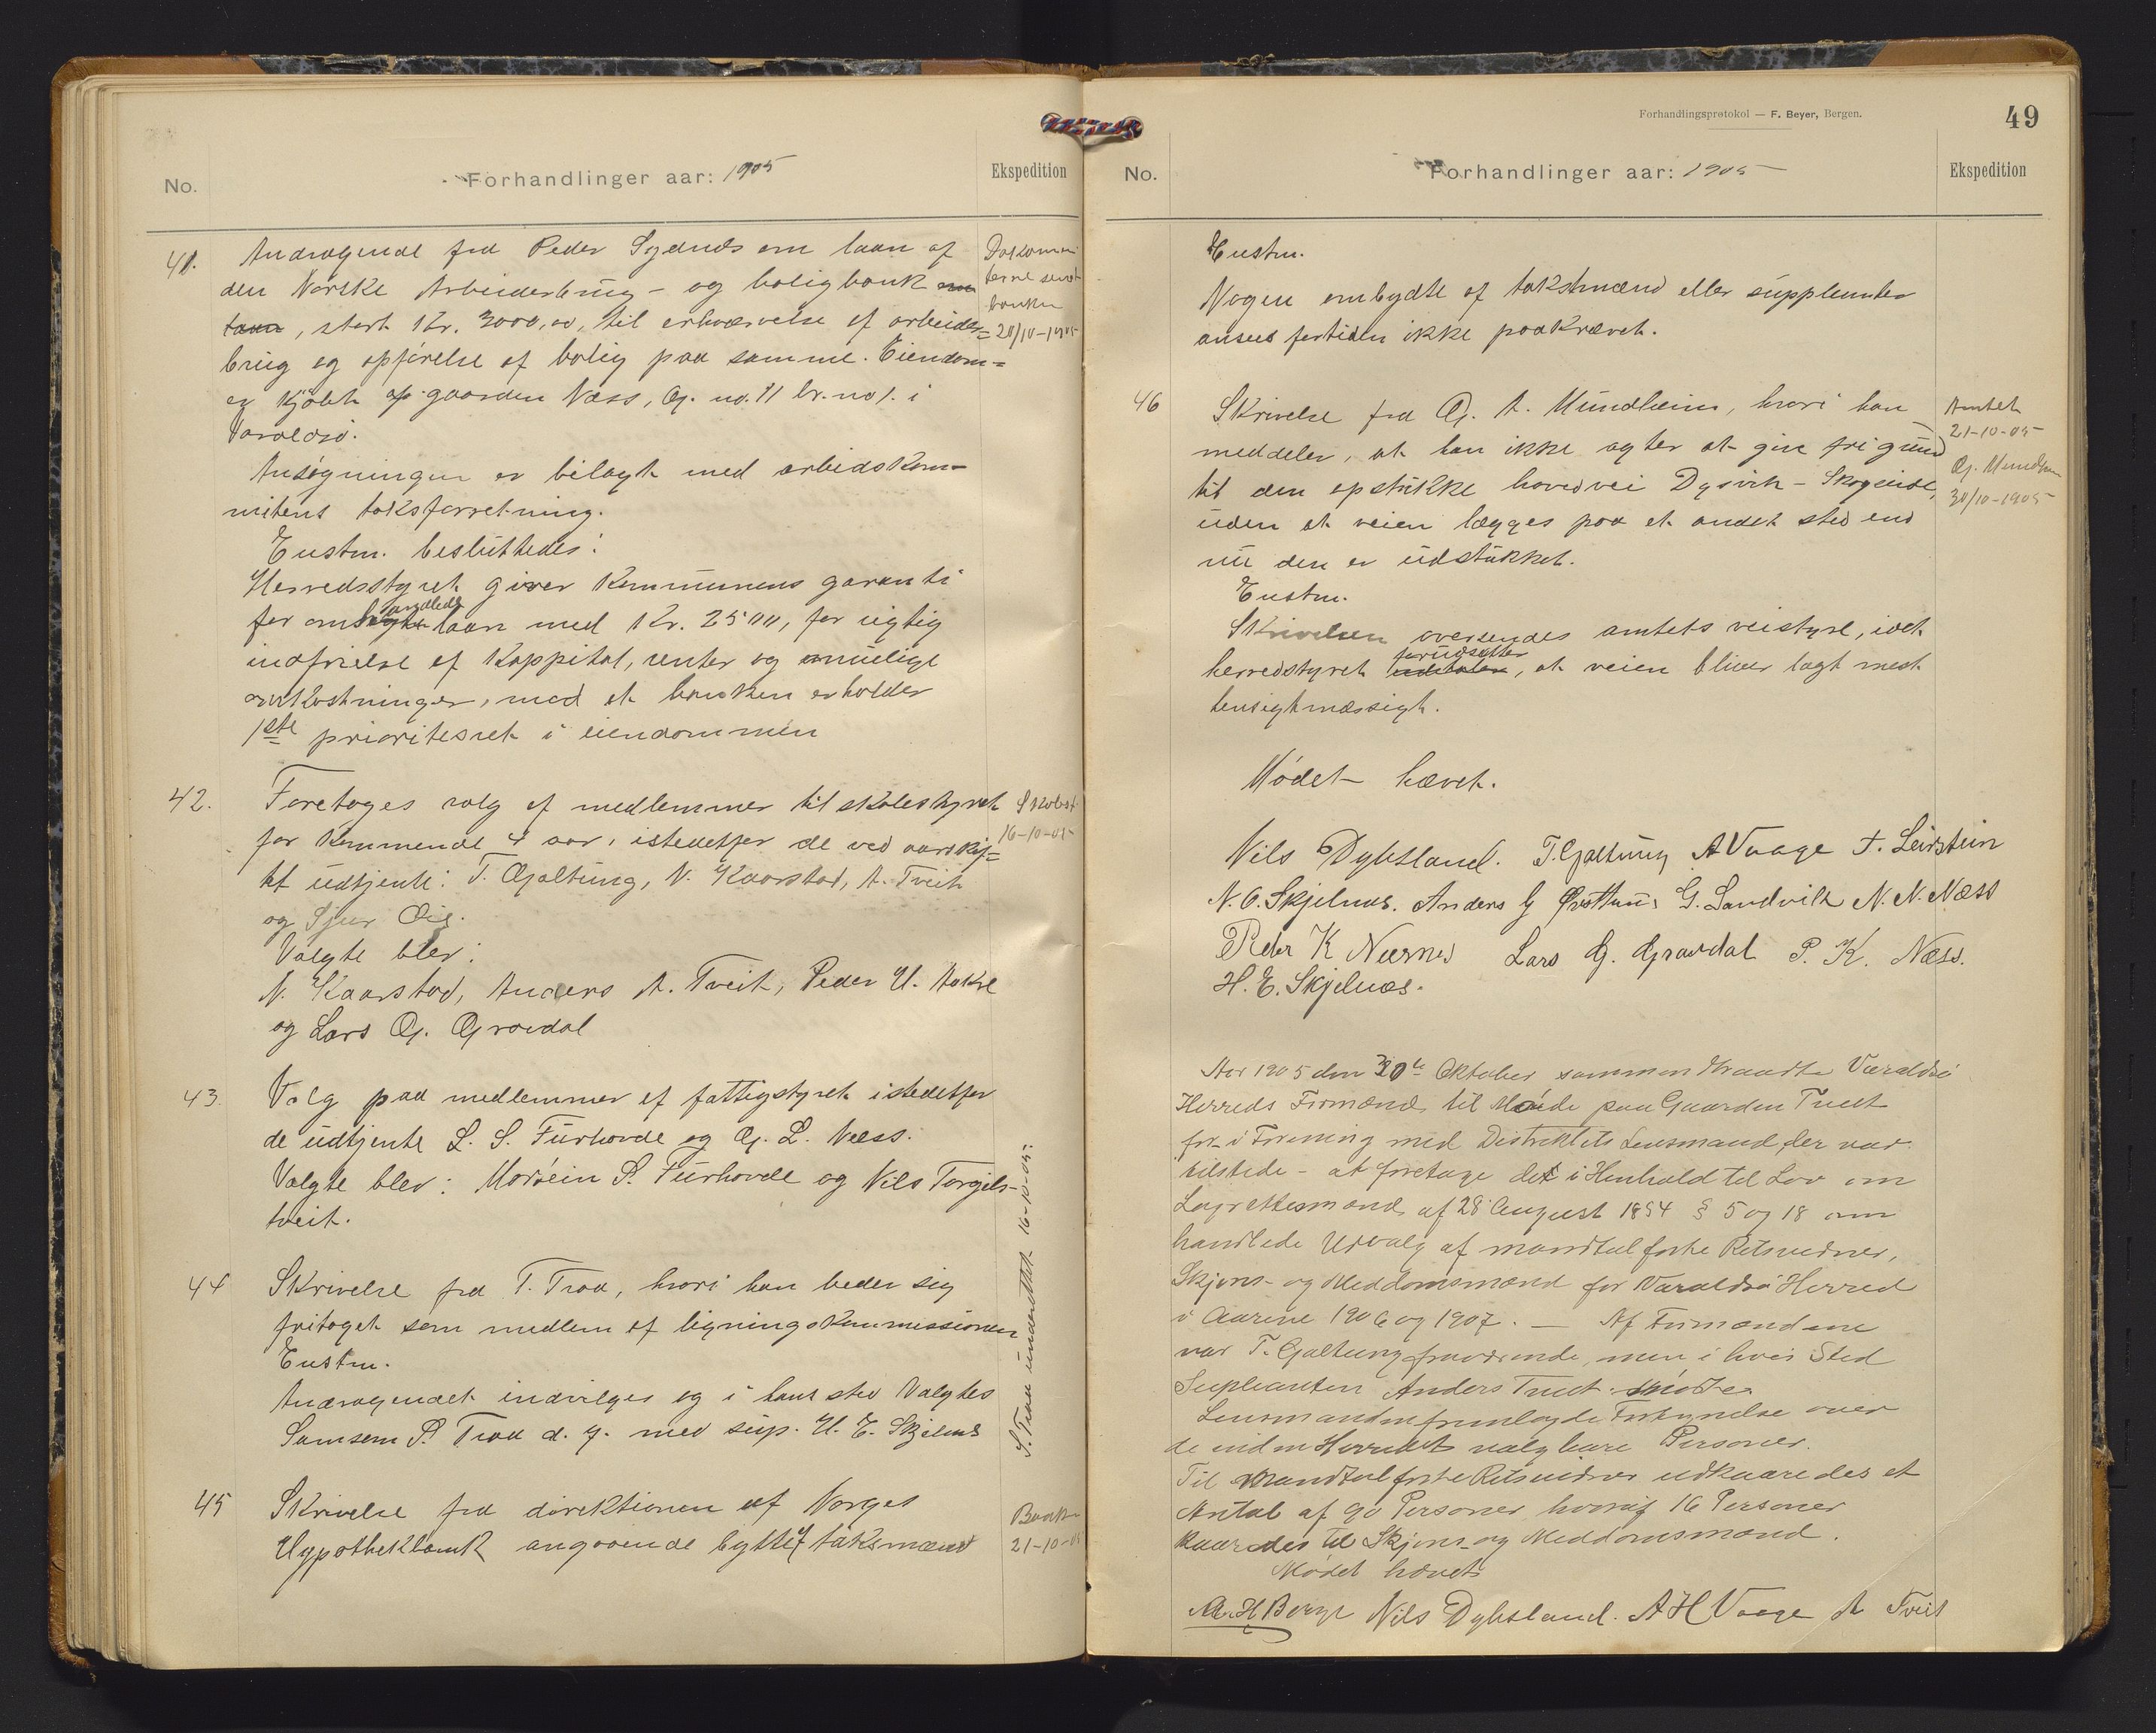 No.
Forhandlinger aar: 1905
Ekspedition
41. Andragende fra Peder Sydnæs om laan af
den Norske Arbeiderbrug- og boligbank om
laan, stort Kr. 3000,00, til erhvervelse af arbeider=
brug og opførelse af bolig paa samme. Eiendom=
er kjøbt af gaarden Næss, G. no. 11 br. no 1. i
Varaldsø.
Dokumen
terne sendt
banken
20/10-1905
Ansøgningen er bilagt med arbeidskom-
mitens taksforretning.
Enstm. besluttedes:
Herredsstyret giver kommunens garanti
for omhandlede laan med Kr. 2500, for rigtig
indfrielse af kappital, renter og muelige
omkostninger, mod at banken erholder
1ste prioritesret i eiendommen
42. Foretoges valg af medlemmer til skolestyret
for kommende 4 aar, istedetfor de ved aarsskif=
tet udtjente: T. Gjaltung, N. Kaarstad, A. Tveit
og Sjur Øie.
Valgte blev:
N. Kaarstad, Anders A. Tveit, Peder H. Aakre
og Lars G. Gravdal
Skolest.
16-10-05
43. Valg paa medlemmer af fattigstyret istedetfor
de udtjente L. S. Furhovde og G. L. Næss.
Valgte blev: P. Furhovde og Nils Torgils-
tveit.
44 Skrivelse fra T. Traa, hvori han beder sig
fritaget som medlem af ligningskommissionen
Enstm.
Andragendet indvilges og i hans sted valgtes
Samsom P. Traa d. y. med sup. H. E. Skjelnæs
S. Traa underrettet 16-10-05.
45 Skrivelse fra direktionen af Norges
Hypothekbank angaaende bytte af taksmænd
Banken
21-10-05
Forhandlingsprotokol — F. Beyer, Bergen.
49
No.
Forhandlinger aar: 1905
Ekspedition
Enstm.
Nogen ombydte af takstmænd eller supplenter
ansees fortiden ikke paakrævet.
46 Skrivelse fra G. A. Mundheim, hvori han
meddeler, at han ikke agter at give fri grund
til den opstukke hovedvei Dysvik - Skogseide,
uden at veien lægges paa et andet sted end
nu den er udstukket.
Amtet
21-10-05
G. Mundheim
30/10-1905
Enstm.
Skrivelsen oversendes amtets veistyre, idet
herredstyret forudsætter, at veien bliver lagt mest
hensigtmæssigt.
Mødet hævet.
Nils Dybsland. T. Gjaltung A Vaage T. Leirstein
N. O. Skjelnæs. Anders G Øvsthus G. Sandvik N. N. Næss
Peder K Nernes Lars G. Gravdal P. K. Næss.
H. E. Skjelnæs.
Aar 1905 den 30te Oktober sammentraadte Varaldsø
Herreds Formænd til Møde paa Gaarden Tveit
for i Forening med Distriktets Lensmand, der var
tilstede - at foretage det i Henhold til Lov om
Lagrettesmænd af 28 August 1854 § 5 og 18 om
handlede Udvalg af mandtalførte Retsvidner,
Skjøns- og Meddomsmænd for Varaldsø Herred
i Aarene 1906 og 1907. — Af Formændene
var T. Gjaltung fraværende, men i hvis Sted
Supleanten Anders Tveit mødte.
Lensmanden fremlagde Fortegnelse over
de inden Herredet valgbare Personer.
Til mandtalførte Retsvidner udkaaredes et
Antal af 90 Personer hvoraf 16 Personer
kaaredes til Skjøns- og Meddomsmænd.
Mødet hævet
H Berge Nils Dybsland. A H Vaage A Tveit